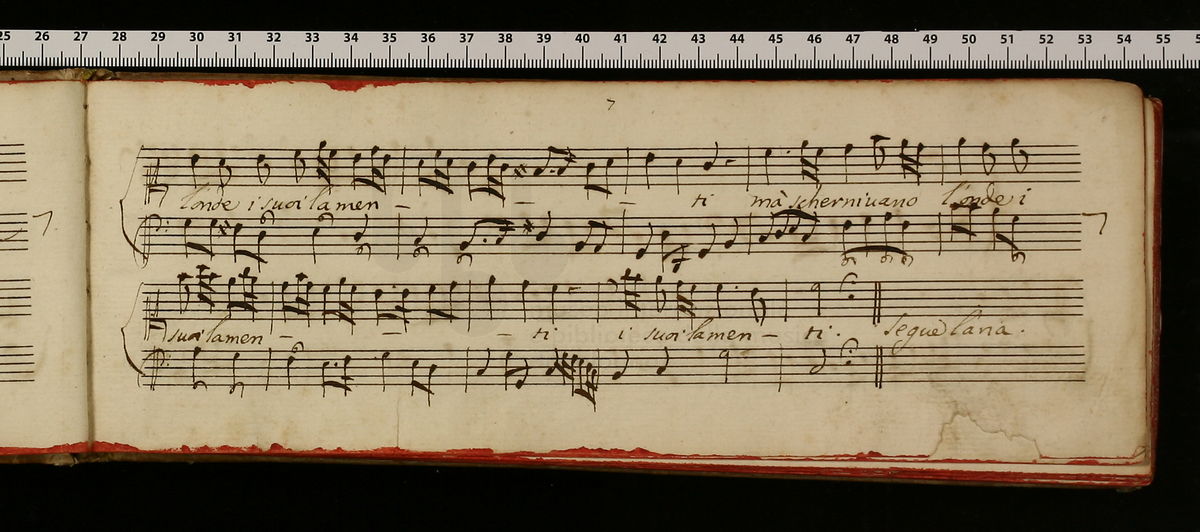 25 26 27 28 29 30 31 32 33 34 35 36 37 38 39 40 41 42 43 44 45 46 47 48 49 50 51 52 53 54 55
7
l'onde i suoi lamen - - - ti mà schernivano l'onde i
suoi lamen - - - ti i suoi lamen - ti. seguè l'aria.